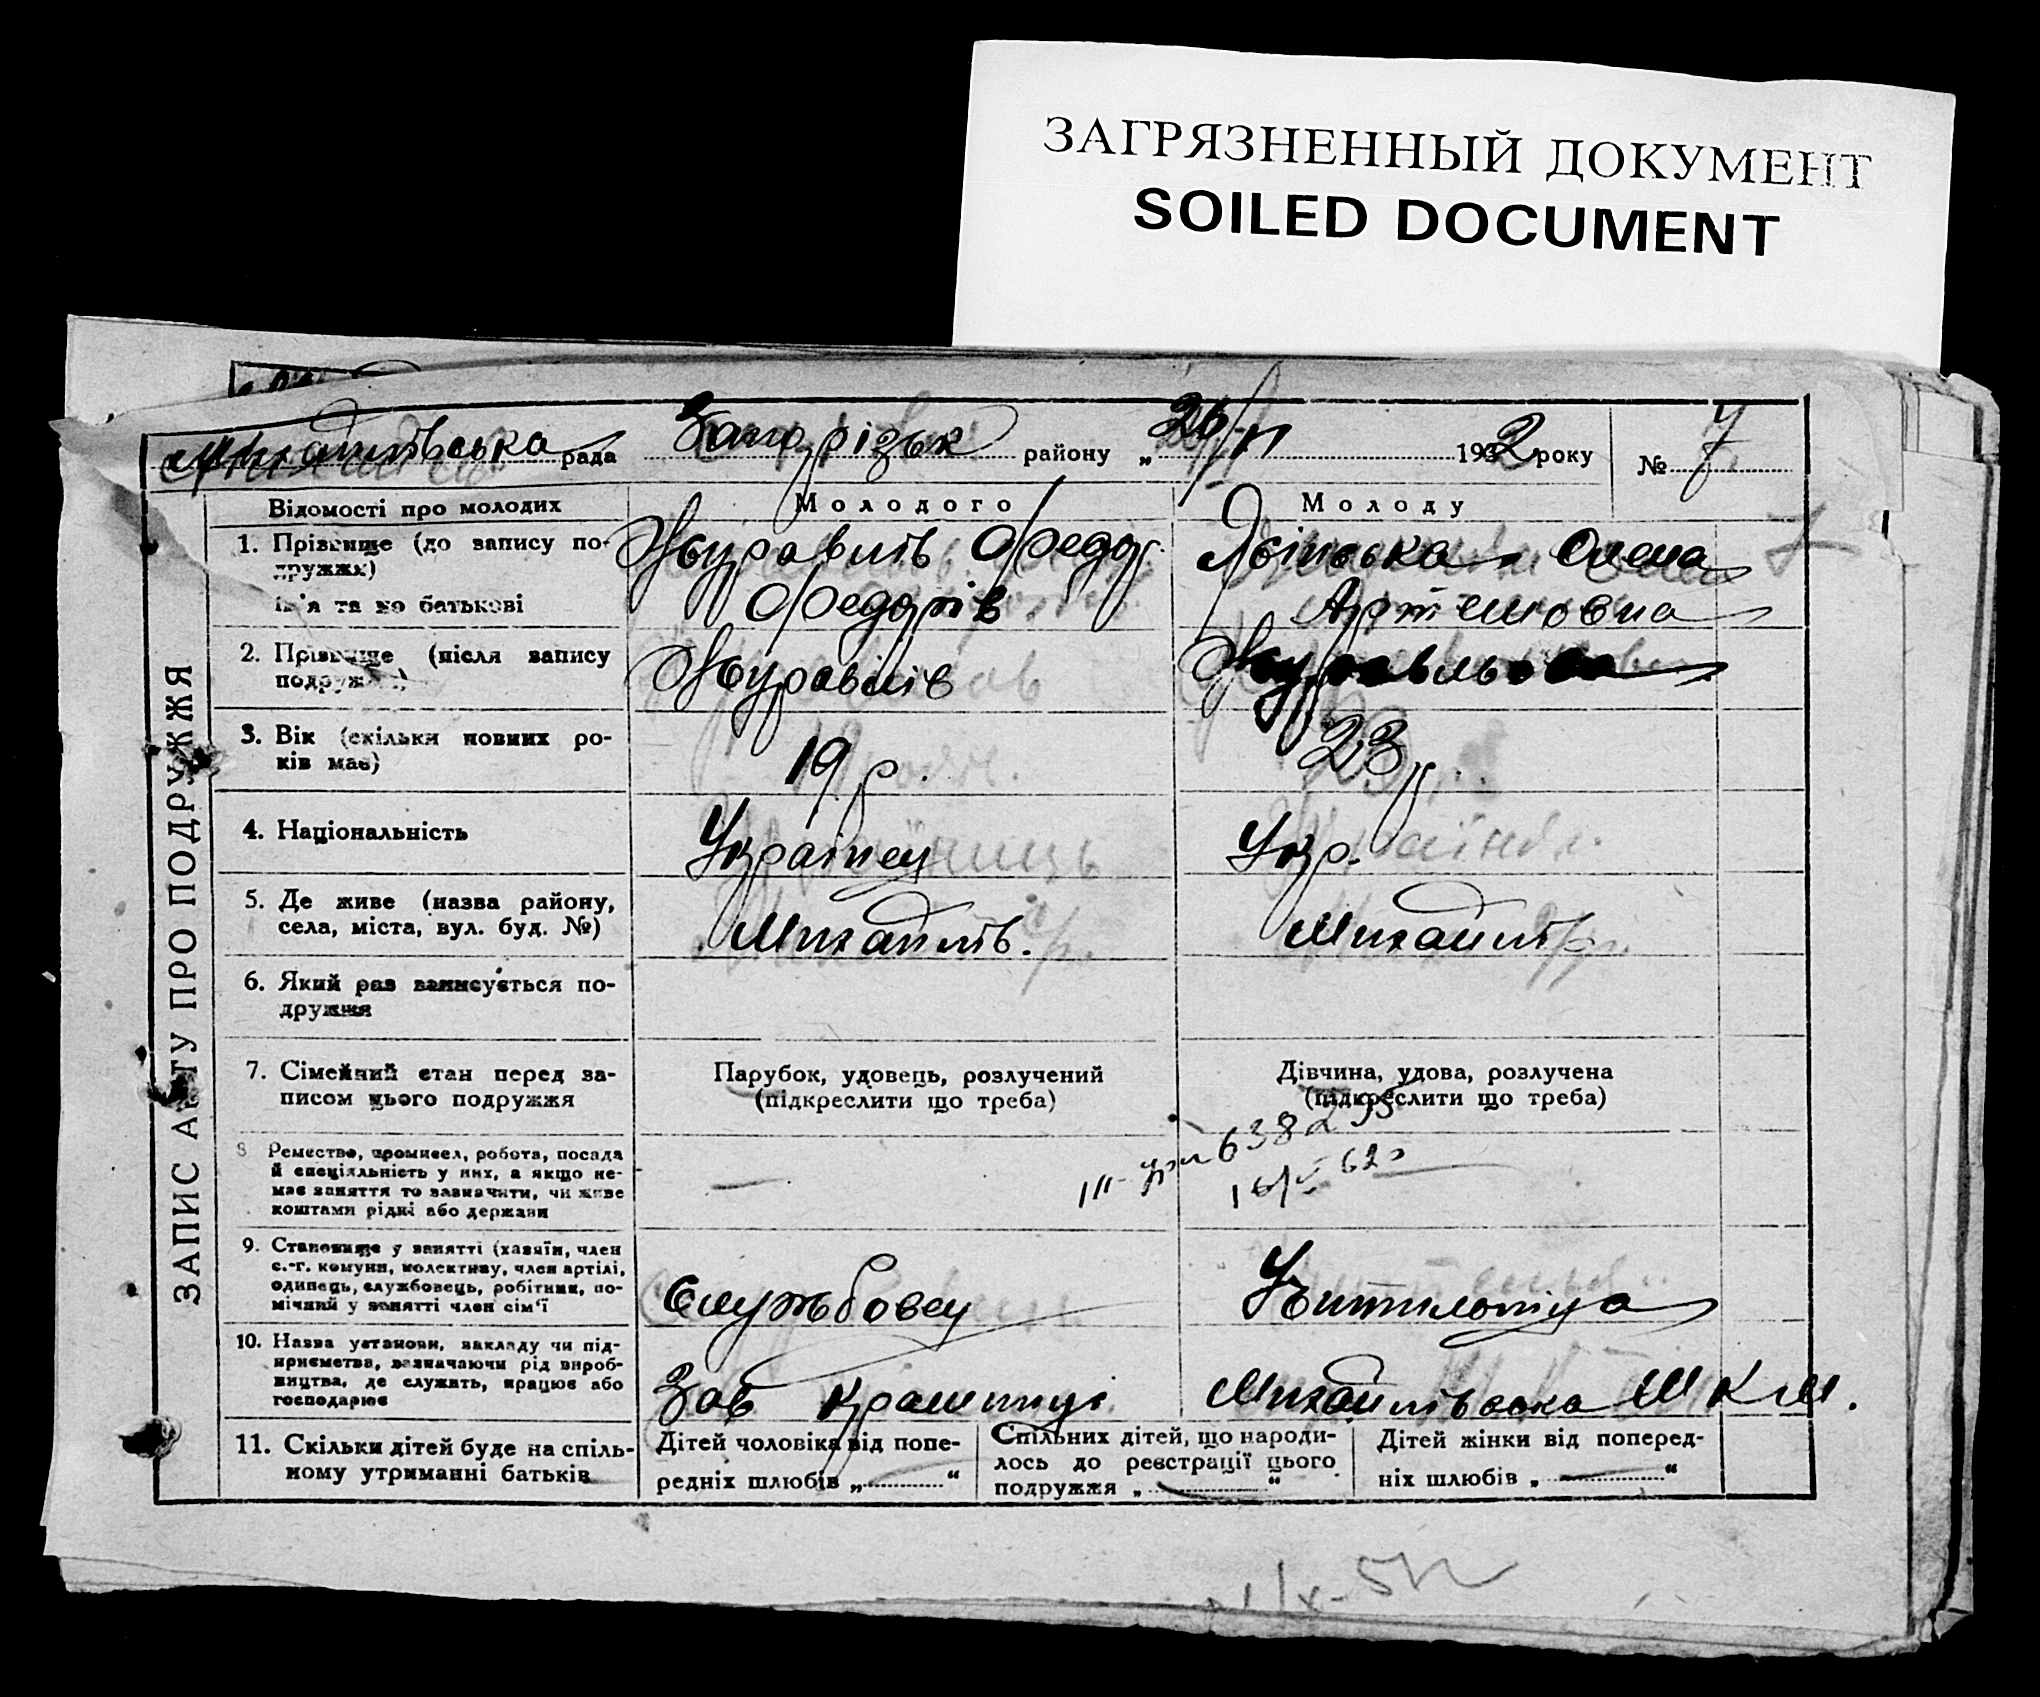 ЗАГРЯЗНЕННЫЙ ДОКУМЕНТ
SOILED DOCUMENT
Михайлівська рада Запорізьк району „ 26/ 1932 року № 7
ЗАПИС АКТУ ПРО ПОДРУЖЖЯ
Відомості про молодих Молодого Молоду
1. Прізвище (до запису по-
дружжя)
ім'я та по батькові
Журавлів Федор
Федорів
Олена
Артемовна
2. Прізвище (після запису
подружжя)
Журавлів Журавльова
3. Вік (скільки повних ро-
ків має)
19 р. 23 р.
4. Національність Українец Укр.
5. Де живе (назва району,
села, міста, вул. буд. №)
Михайлів. Михайлів
6. Який раз записується по-
дружжя
7. Сімейний стан перед за-
писом цього подружжя
Парубок, удовець, розлучений
(підкреслити що треба)
Дівчина, удова, розлучена
(підкреслити що треба)
8 Ремество, промисел, робота, посада
й спеціяльність у них, а якщо не-
має заняття то зазначити, чи живе
коштами рідні або держави
— 638255
9. Становище у занятті (хазяїн, член
с.-г. комуни, колективу, член артілі,
одинець, службовець, робітник, по-
мічний у занятті член сім'ї
Службовец Вителниця
10. Назва установи, закладу чи під-
приємства, зазначаючи рід вироб-
ництва, де служить, працює або
господарює
Зав крамниці Михайлівська ШКМ.
11. Скільки дітей буде на спіль-
ному утриманні батьків
Дітей чоловіка від попе-
редніх шлюбів „ — “
Спільних дітей, що народи-
лось до реєстрації цього
подружжя „ — “
Дітей жінки від поперед-
ніх шлюбів „ — “